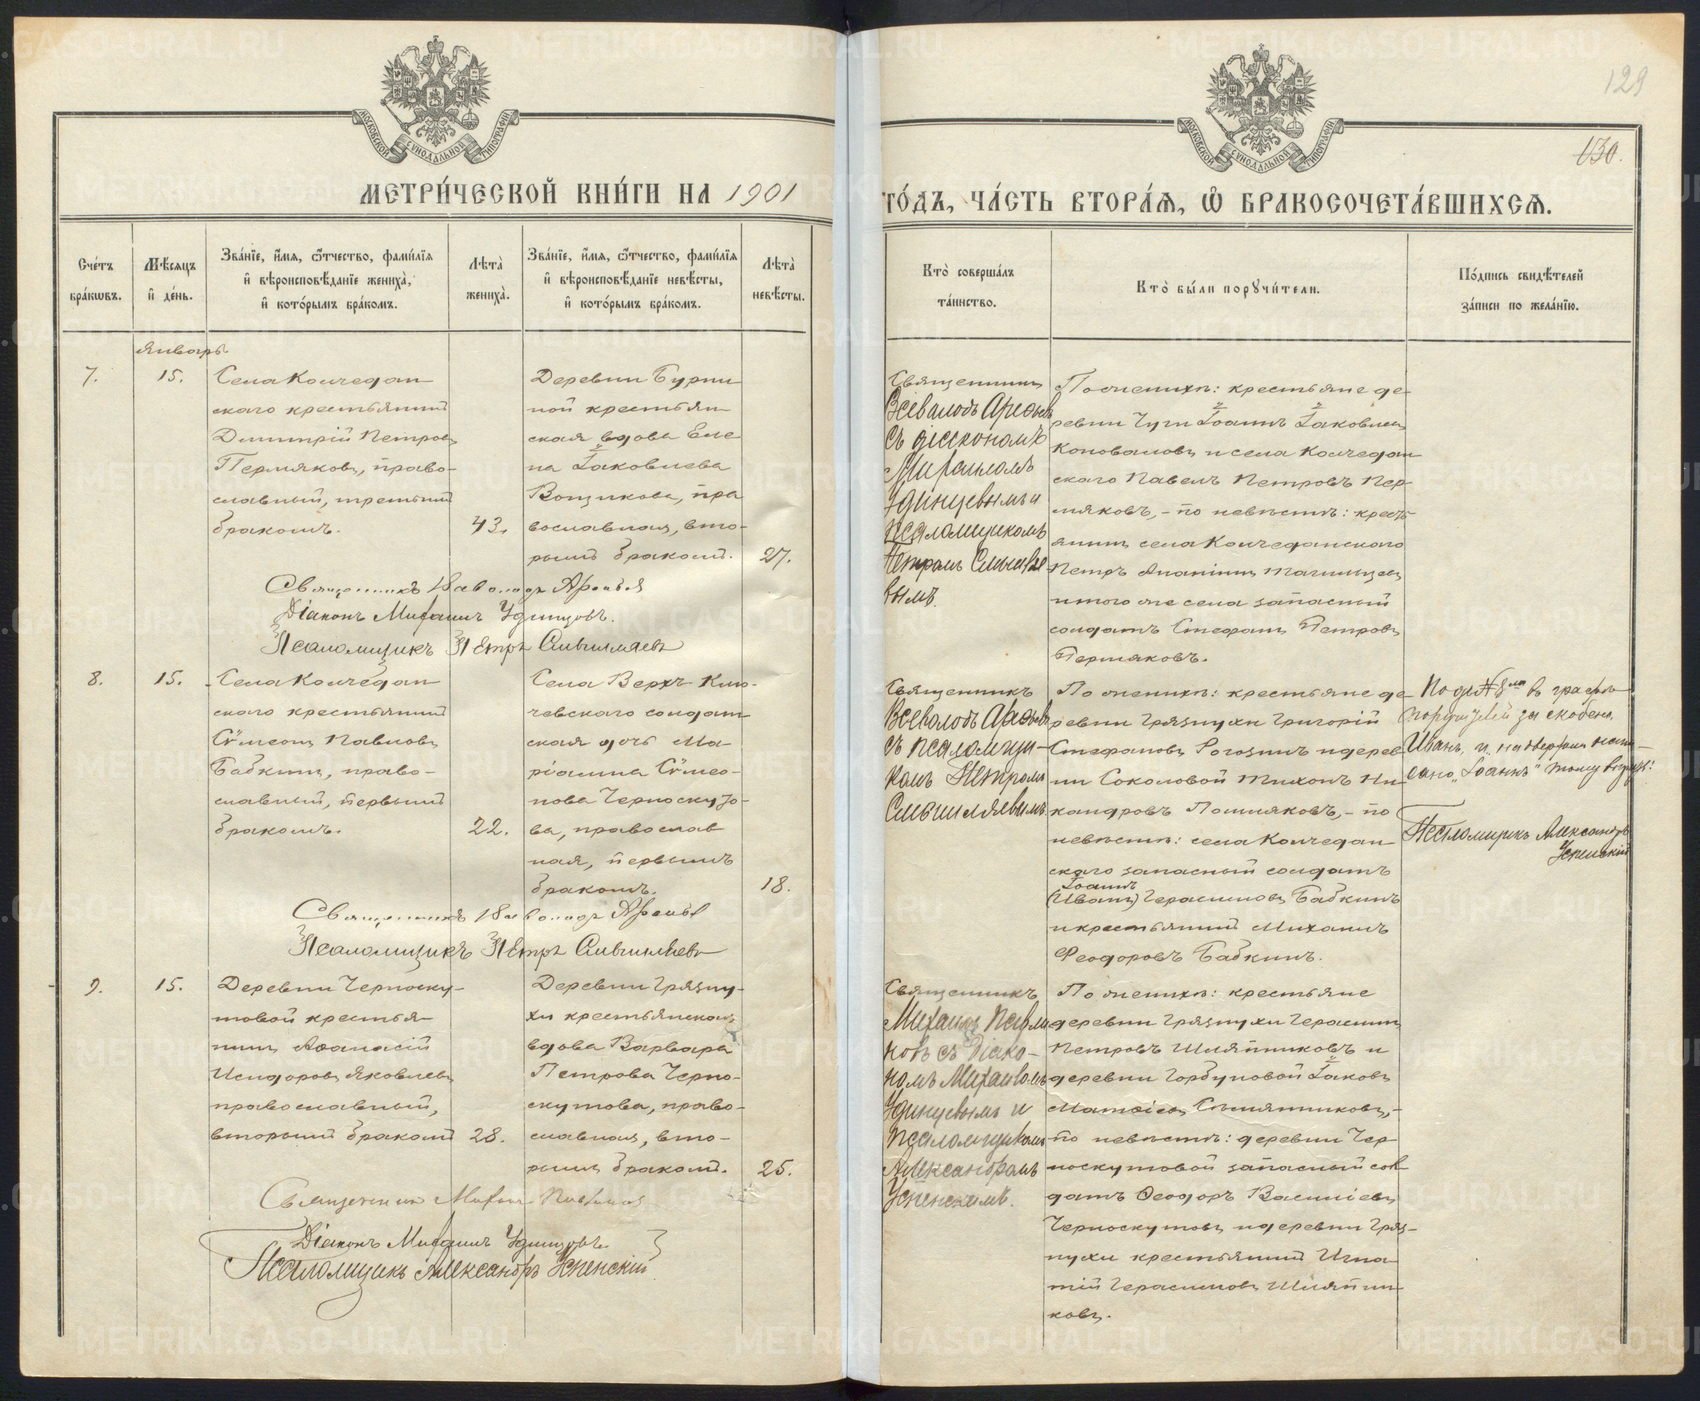 129
130.
МЕТРИ́ЧЕСКОЙ КНИ́ГИ НА 1901
ГО́ДЪ, ЧА́СТЬ ВТОРА́Я, Ѽ БРАКОСОЧЕТА́ВШИХСЯ.
Сче́тъ бра́кѡвъ.
Мѣ́сяцъ и҆ де́нь.
Зва́нїе, и҆́мя, ѻ҆́тчество, фами́лїя и҆ вѣроисповѣ́данїе жениха̀, и҆ кото́рымъ бра́комъ.
Лѣ́та жениха̀.
Зва́нїе, и҆́мя, ѻ҆́тчество, фами́лїя и҆ вѣроисповѣ́данїе невѣ́сты, и҆ кото́рымъ бра́комъ.
Лѣ́та невѣ́сты.
Кто̀ соверша́лъ та́инство.
Кто̀ бы́ли порꙋчи́тели.
По́дпись свидѣ́телей за́писи по жела́нїю.
Январь
7.
15.
Села Колчедан
скаго крестьянинъ
Димитрій Петровъ
Пермяковъ, право-
славный, третьимъ
бракомъ.
43.
Деревни Бурни
ной крестьян
ская вдова Еле
на Іаковлева
Вощикова, пра
вославная, вто-
рымъ бракомъ.
27.
Священникъ
Всеволодъ Арефьевъ
съ діакономъ
Михаиломъ
Удинцевымъ и
псаломщикомъ
Петромъ
вымъ.
По женихѣ: крестьяне де-
ревни Чуги Іоаннъ Іаковлевъ
Коноваловъ и села Колчедан
скаго Павелъ Петровъ Пер-
мяковъ, - по невѣстѣ: крестъ-
янинъ села Колчеданскаго
Петръ Ананіинъ
и того же села запасный
солдатъ Стефанъ Петровъ
Пермяковъ.
Священникъ Всеволодъ Арефьев
Діаконъ Михаилъ Удинцовъ.
Псаломщикъ Петръ
8.
15.
Села Колчедан
скаго крестьянинъ
Сѵмеонъ Павловъ
Бабкинъ, право-
славный, первымъ
бракомъ.
22.
Села Верхъ-Клю-
чевскаго солдат
ская дочь Ма-
ріамна Сѵмео-
нова Черноскуто-
ва, православ
ная, первымъ
бракомъ.
18.
Священникъ
Всеволодъ Арефьевъ
съ псаломщи-
комъ Петромъ
По женихѣ: крестьяне де
ревни Грязнухи Григорій
Стефановъ Рогозинъ и дерев
ни Соколовой Тихонъ Ни
кандровъ Пошляковъ, - по
невѣстѣ: села Колчедан
скаго запасный солдатъ
Іоаннъ
(Иванъ) Герасимовъ Бабкинъ
и крестьянинъ Михаилъ
Феодоровъ Бабкинъ.
По ст. № 8мъ въ графѣ
поручителей за скобена
Иванъ, и надъ верхомъ напи-
сано „Іоаннъ" тому вѣрить.
Псаломщикъ Александръ
Успенскій
Священникъ Всеволодъ Арефьев
Псаломщикъ Петръ
9.
15.
Деревни Черноску-
товой крестья-
нинъ Аѳанасій
Исидоровъ Яковлевъ
православный,
вторымъ бракомъ
28.
Деревни Грязну-
хи крестьянская
вдова Варвара
Петрова Черно-
скутова, право-
славная, вто-
рымъ бракомъ.
25.
Священникъ
Михаилъ
новъ съ діако-
номъ Михаиломъ
Удинцевымъ и
псаломщикомъ
Александромъ
Успенскимъ.
По женихѣ: крестьяне
деревни Грязнухи Герасимъ
Петровъ Шляпниковъ и
деревни Горбуновой Іаковъ
Матѳіевъ -
по невѣстѣ: деревни Чер
носкутовой запасный сол
датъ Ѳеодоръ Василіевъ
Черноскутовъ и деревни Гряз-
нухи крестьянинъ Игна
тій Герасимовъ Шляпни
ковъ.
Священникъ Михаилъ
Діаконъ Михаилъ Удинцовъ.
Псаломщикъ Александръ Успенскій
METRIKI.GASO-URAL.RU